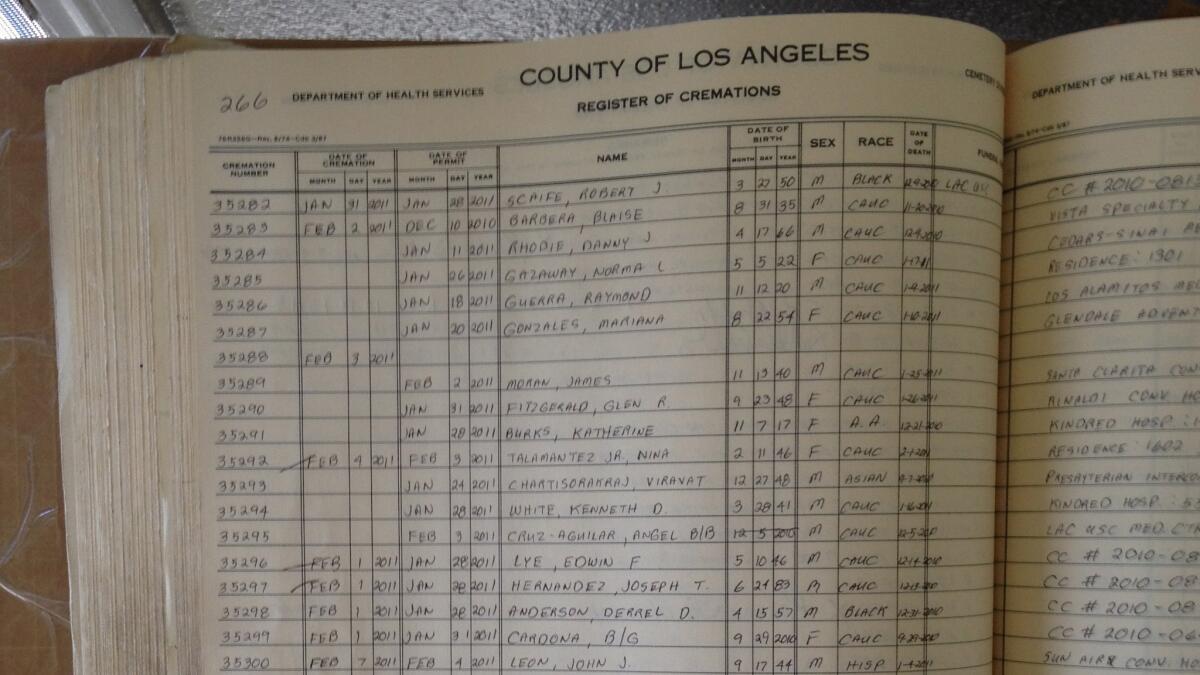 266 DEPARTMENT OF HEALTH SERVICES
COUNTY OF LOS ANGELES
REGISTER OF CREMATIONS
CEMETERY
CREMATION NUMBER DATE OF CREMATION DATE OF PERMIT NAME DATE OF BIRTH SEX RACE DATE OF DEATH
MONTH DAY YEAR MONTH DAY YEAR MONTH DAY YEAR
35282 JAN 31 2011 JAN 28 2011 SCAIFE, ROBERT J 3 27 50 M BLACK LAC
35283 FEB 2 2011 DEC 10 2010 BARBERA, BLAISE 8 31 35 M CAUC
35284 JAN 11 2011 RHODIE, DANNY J 4 17 66 M CAUC
35285 JAN 26 2011 GAZAWAY, NORMA L 5 5 22 F CAUC
35286 JAN 18 2011 GUERRA, RAYMOND 11 12 20 M CAUC 1-9-2011
35287 JAN 20 2011 GONZALES, MARIANA 8 22 54 F CAUC 1-10-2011
35288 FEB 3 2011
35289 FEB 2 2011 MORAN, JAMES 11 13 40 M CAUC 1-25-2011
35290 JAN 31 2011 FITZGERALD, GLEN R. 9 23 48 F CAUC 1-26-2011
35291 JAN 28 2011 BURKS, KATHERINE 11 7 17 F A.A. 12-21-2010
35292 FEB 4 2011 FEB 3 2011 TALAMANTEZ JR, NINA 2 11 46 F CAUC
35293 JAN 24 2011 CHARTISORAKRAJ, VIRAVAT 12 27 48 M ASIAN
35294 JAN 28 2011 WHITE, KENNETH D. 3 28 41 M CAUC
35295 FEB 3 2011 CRUZ-AGUILAR, ANGEL B/B 12 5 2010 M CAUC
35296 FEB 1 2011 JAN 28 2011 LYE, EDWIN F 5 10 46 M CAUC
35297 FEB 1 2011 JAN 28 2011 HERNANDEZ, JOSEPH T. 6 21 83 M CAUC
35298 FEB 1 2011 JAN 28 2011 ANDERSON, DERREL D. 4 15 57 M BLACK 12-31-2010
35299 FEB 1 2011 JAN 31 2011 CARDONA, B/G 9 29 2010 F CAUC
35300 FEB 7 2011 FEB 4 2011 LEON, JOHN J. 9 17 44 M HISP 1-4-2011
DEPARTMENT OF HEALTH
CC # 2010-081
VISTA SPECIALTY
CEDARS-SINAI
RESIDENCE: 1301
LOS ALAMITOS
GLENDALE
SANTA CLARITA
RINALDI CONV.
KINDRED HOSP:
RESIDENCE: 1602
PRESBYTERIAN
KINDRED HOSP:
LAC USC MED.
CC # 2010-08
CC # 2010-08
CC # 2010-08
CC # 2010-06
SUN AIRE CONV.